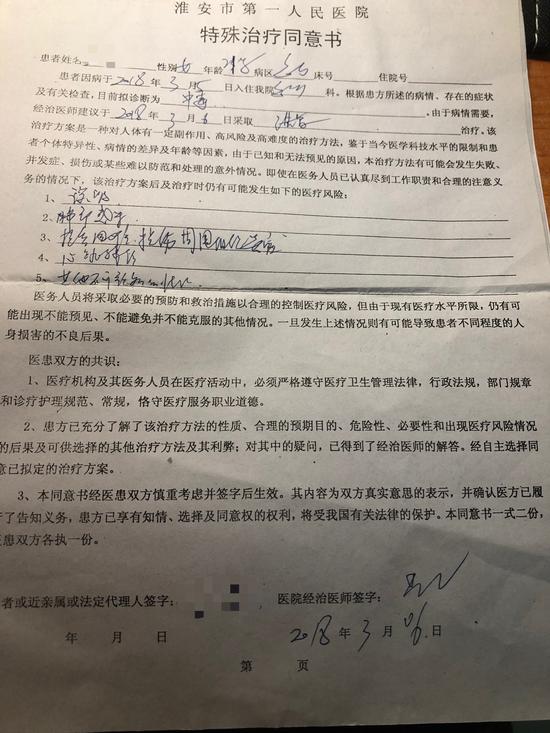 淮安市第一人民医院
特殊治疗同意书
患者姓名 性别 女 年龄 病区 床号 住院号
患者因病于 2018 年 3 月 日入住我院 科。根据患方所述的病情、存在的症状
及有关检查，目前拟诊断为 。由于病情需要，
经治医师建议于 2018 年 3 月 6 日采取 治疗。该
治疗方案是一种对人体有一定副作用、高风险及高难度的治疗方法，鉴于当今医学科技水平的限制和患
者个体特异性、病情的差异及年龄等因素，由于已知和无法预见的原因，本治疗方法有可能会发生失败、
并发症、损伤或某些难以防范和处理的意外情况。即使在医务人员已认真尽到工作职责和合理的注意义
务的情况下，该治疗方案后及治疗时仍有可能发生如下的医疗风险：
1、
2、
3、
4、
5、
医务人员将采取必要的预防和救治措施以合理的控制医疗风险，但由于现有医疗水平所限，仍有可
能出现不能预见、不能避免并不能克服的其他情况。一旦发生上述情况则有可能导致患者不同程度的人
身损害的不良后果。
医患双方的共识：
1、医疗机构及其医务人员在医疗活动中，必须严格遵守医疗卫生管理法律，行政法规，部门规章
和诊疗护理规范、常规，恪守医疗服务职业道德。
2、患方已充分了解了该治疗方法的性质、合理的预期目的、危险性、必要性和出现医疗风险情况
的后果及可供选择的其他治疗方法及其利弊；对其中的疑问，已得到了经治医师的解答。经自主选择同
意已拟定的治疗方案。
3、本同意书经医患双方慎重考虑并签字后生效。其内容为双方真实意思的表示，并确认医方已履
行了告知义务，患方已享有知情、选择及同意权的权利，将受我国有关法律的保护。本同意书一式二份，
医患双方各执一份。
者或近亲属或法定代理人签字： 医院经治医师签字：
年 月 日 2018 年 3 月 6 日
第 页